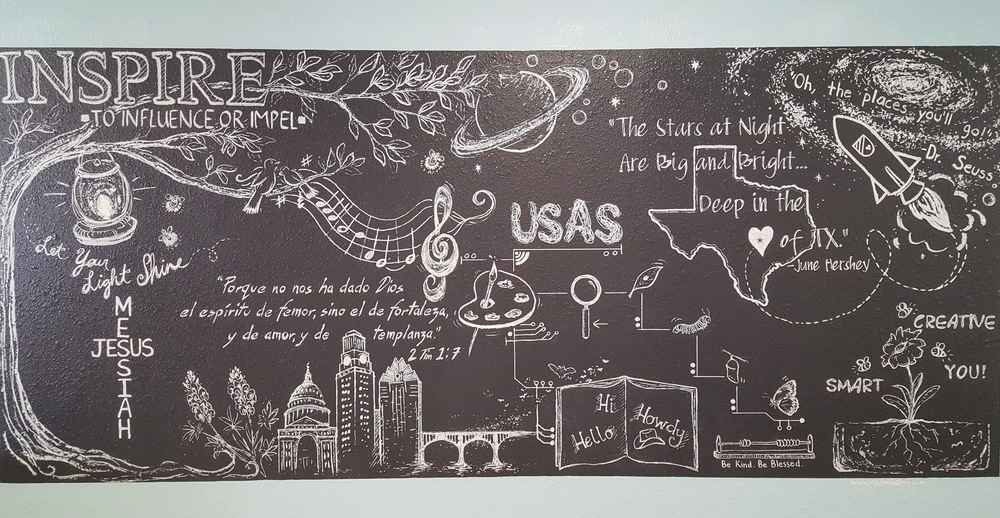 INSPIRE
TO INFLUENCE OR IMPEL
"Oh, the places you'll go!!"
Dr. Seuss
"The Stars at Night
Are Big and Bright...
Deep in the
of TX."
-June Hershey
USAS
Let Your
Light Shine
MESSIAH
JESUS
"Porque no nos ha dado Dios
el espíritu de femor, sino el de fortaleza,
y de amor, y de templanza."
2 Tm 1:7
CREATIVE
SMART
YOU!
Hi
Hello
Howdy
Be Kind. Be Blessed.